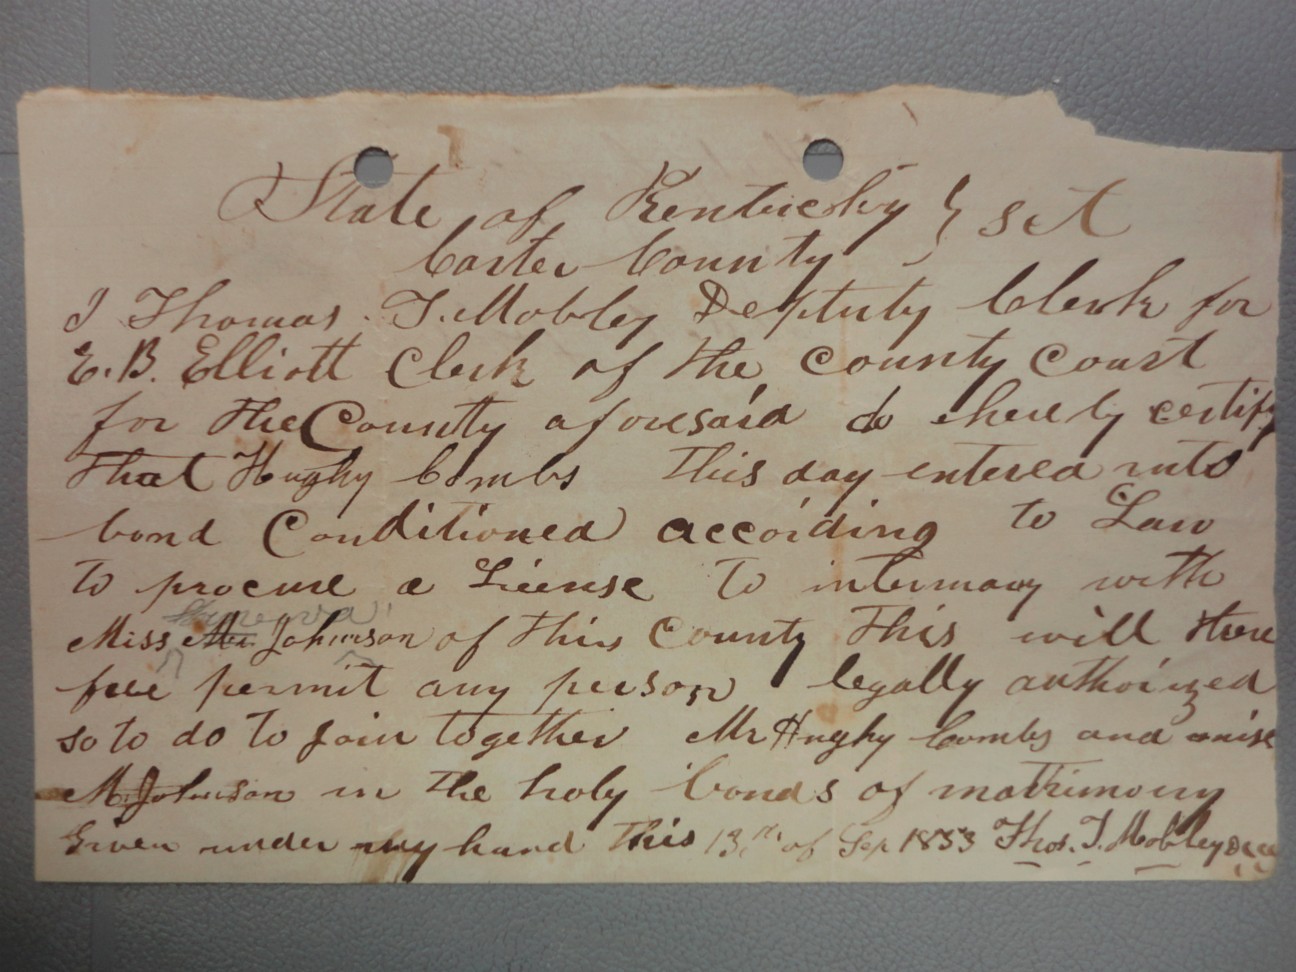 State of Kentucky } set
Carter County
I Thomas T. Mobley Deputy Clerk for
E. B. Elliott Clerk of the County Court
for the County aforesaid do hereby certify
that Hughy Combs this day entered into
bond Conditioned according to Law
to procure a License to intermary with
Miss M. Johnson of this County this will there
fore permit any person legally authorized
so to do to Join together Mr Hughy Combs and miss
M. Johnson in the holy bonds of matrimony
Given under my hand this 13th of Sep 1853 Thos. T. Mobley